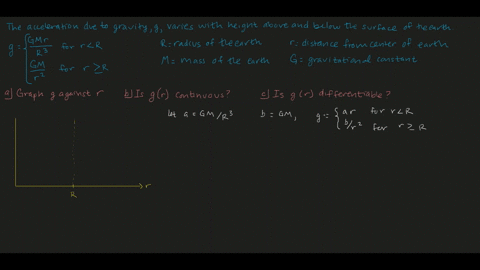 The acceleration due to gravity, g, varies with height above and below the surface of the earth.
g = { GMr/R³ for r<R
GM/r² for r≥R
R = radius of the earth r: distance from center of earth
M = mass of the earth G: gravitational constant
a) Graph g against r b) Is g(r) continuous? c) Is g(r) differentiable?
let a = GM/R³ b = GM, g = { ar for r<R
b/r² for r≥R
r
R